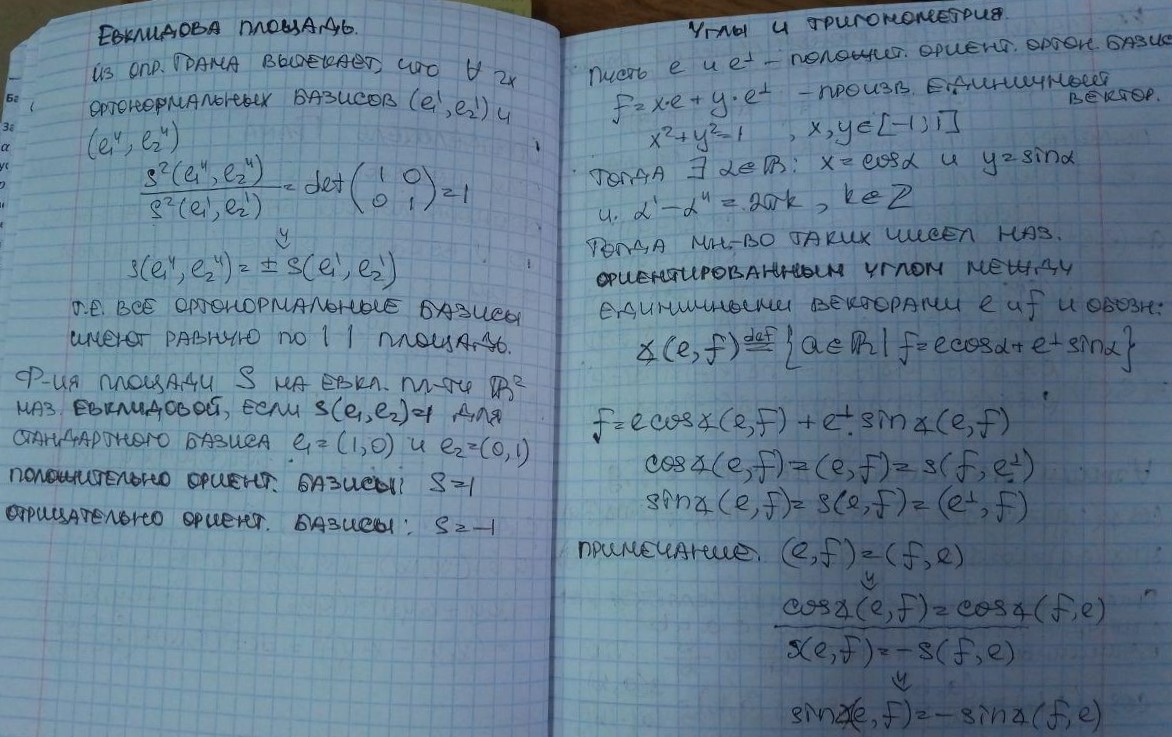 ЕВКЛИДОВА ПЛОЩАДЬ.
ИЗ ОПР. ГРАМА ВЫТЕКАЕТ, ЧТО ∀ 2х
ОРТОНОРМАЛЬНЫХ БАЗИСОВ (e₁', e₂') и
(e₁'', e₂'')
S²(e₁'', e₂'') / S²(e₁', e₂') = det (1 0; 0 1) = 1
⇓
S(e₁'', e₂'') = ± S(e₁', e₂')
Т.Е. ВСЕ ОРТОНОРМАЛЬНЫЕ БАЗИСЫ
ИМЕЮТ РАВНУЮ ПО | | ПЛОЩАДЬ.
Ф-ИЯ ПЛОЩАДИ S НА ЕВКЛ. ПЛ-ТИ ℝ²
НАЗ. ЕВКЛИДОВОЙ, ЕСЛИ S(e₁, e₂)=1 ДЛЯ
СТАНДАРТНОГО БАЗИСА e₁=(1,0) и e₂=(0,1)
ПОЛОЖИТЕЛЬНО ОРИЕНТ. БАЗИСЫ: S=1
ОТРИЦАТЕЛЬНО ОРИЕНТ. БАЗИСЫ: S=-1
УГЛЫ И ТРИГОНОМЕТРИЯ.
ПУСТЬ e и e⊥ – ПОЛОЖИТ. ОРИЕНТ. ОРТОН. БАЗИС
f = x·e + y·e⊥ – ПРОИЗВ. ЕДИНИЧНЫЙ
ВЕКТОР.
x²+y²=1 , x,y∈[-1;1]
ТОГДА ∃ α∈ℝ: x=cosα и y=sinα
и. α'-α''=2πk, k∈Z
ТОГДА МН-ВО ТАКИХ ЧИСЕЛ НАЗ.
ОРИЕНТИРОВАННЫМ УГЛОМ МЕЖДУ
ЕДИНИЧНЫМИ ВЕКТОРАМИ e и f и ОБОЗН:
∡(e,f) def= {α∈ℝ | f=e cosα + e⊥ sinα}
f = e cos∡(e,f) + e⊥. sin∡(e,f)
cos∡(e,f)=(e,f)=S(f,e⊥)
sin∡(e,f)=S(e,f)=(e⊥,f)
ПРИМЕЧАНИЕ. (e,f)=(f,e)
⇓
cos∡(e,f)=cos∡(f,e)
S(e,f)=-S(f,e)
⇓
sin∡(e,f)=-sin∡(f,e)